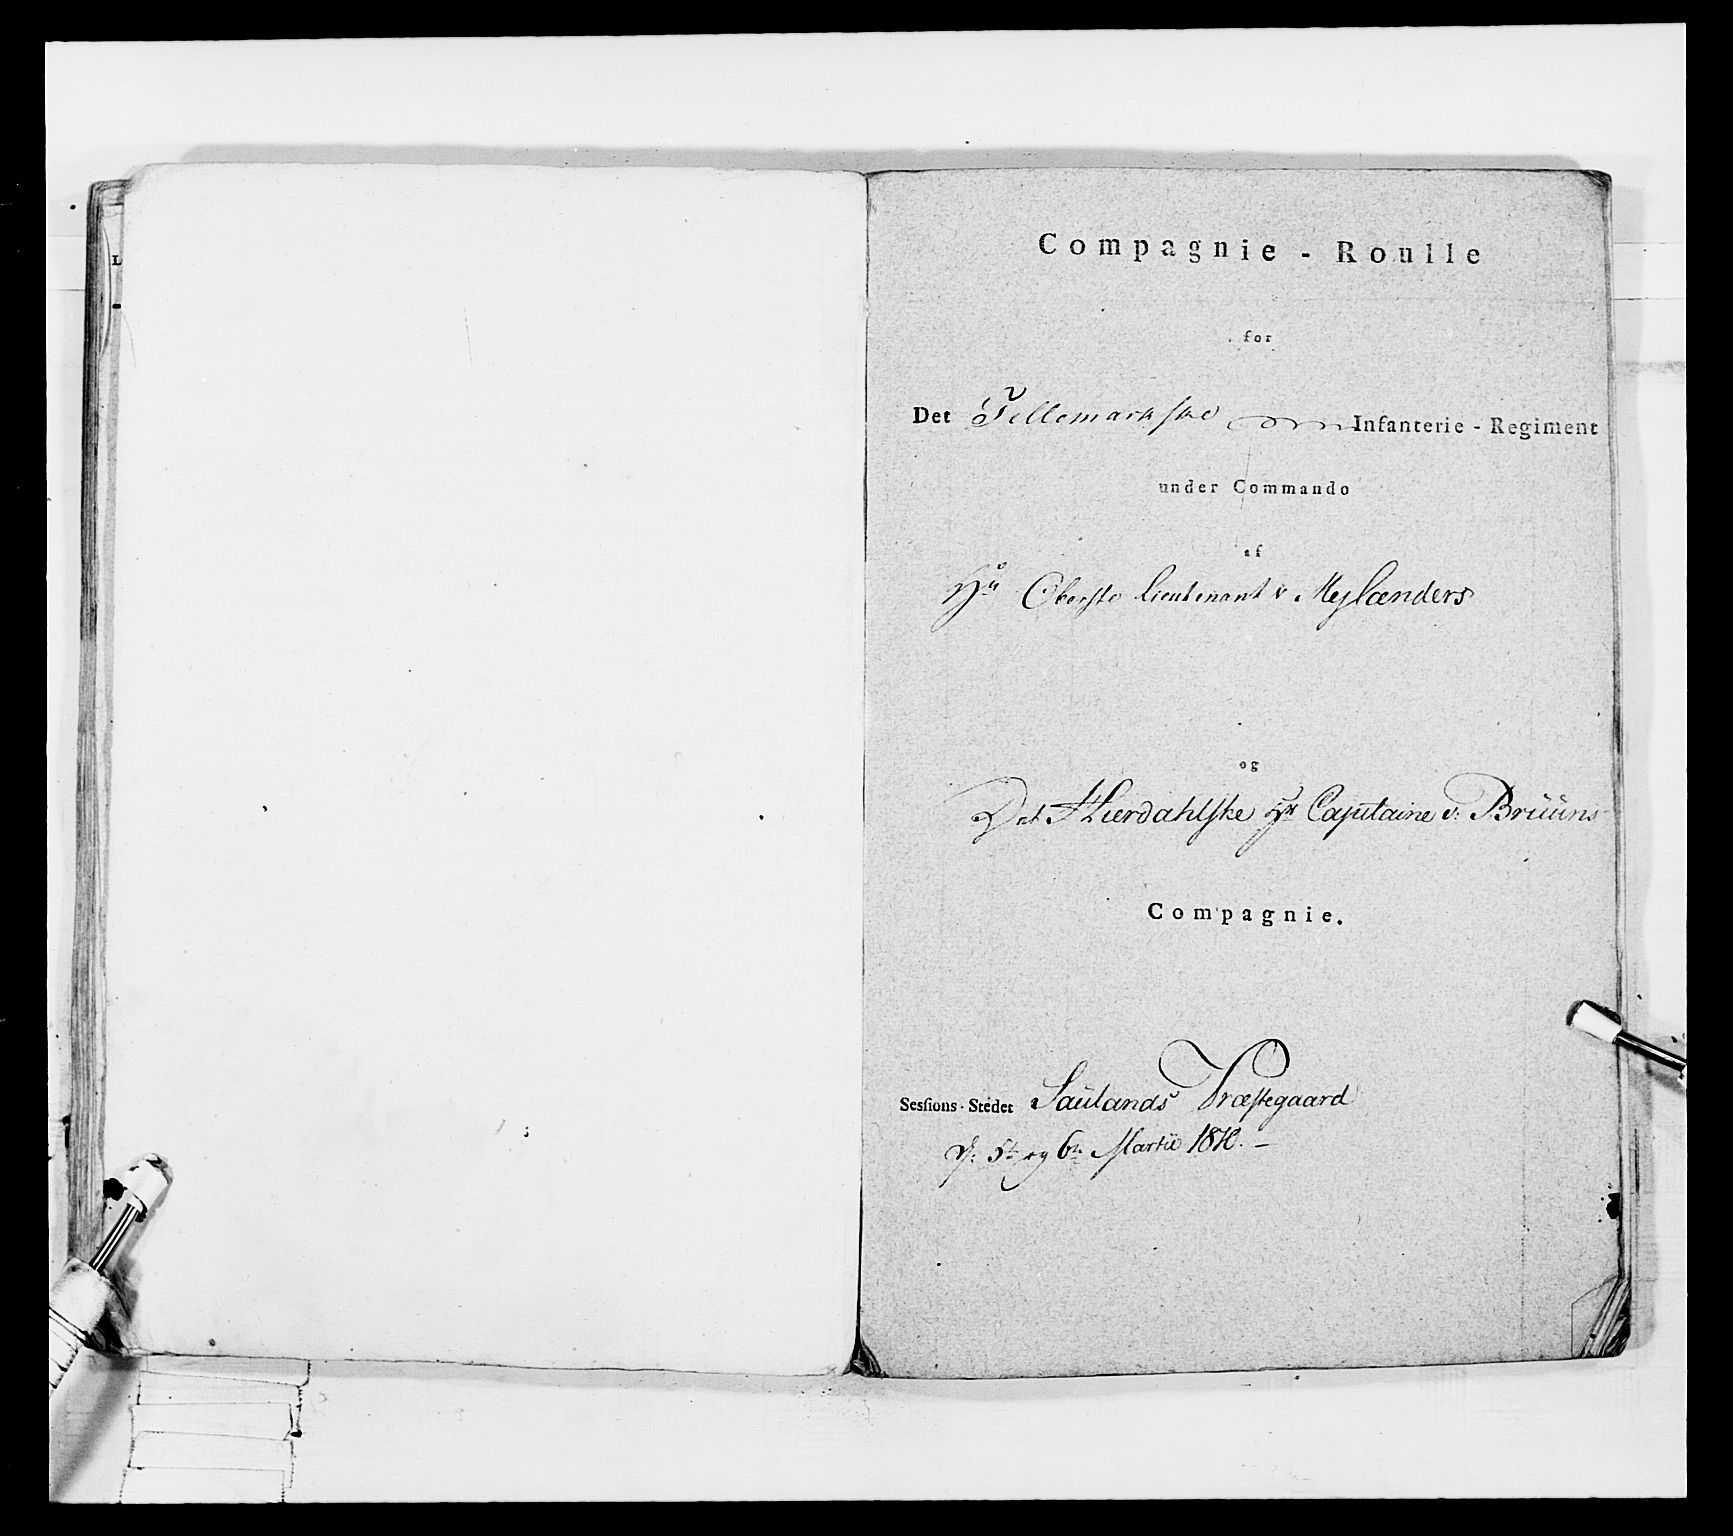 Compagnie - Roulle
for
Det Tellemarkske Infanterie - Regiment
under Commando
af
Hr Oberste Lieutenant v Mylænders
og
Det Hierdahlske Hr Capitaine v: Brüüns
Compagnie.
Sessions-Stedet Saulands Præstegaard
d: 5te og 6te Martii 1810. —